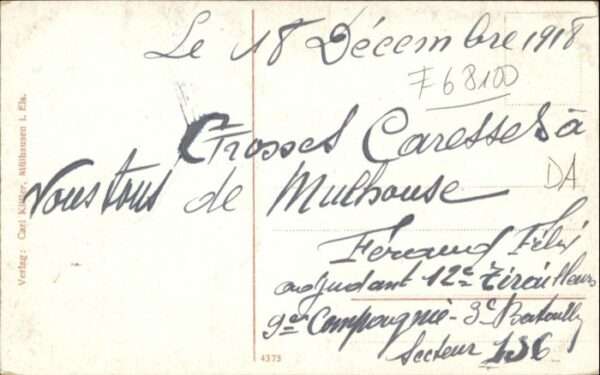 Le 18 Décembre 1918
F68100
Grosses Caresses à
Vous tous de Mulhouse
DA
Féraud Félix
adjudant 12e Tirailleurs
9e Compagnie - 3e Bataill
Secteur 136
Verlag: Carl Mülhausen i. Els.
4373